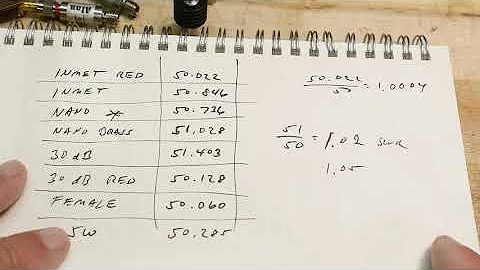 INMET RED 50.022
INMET 50.846
NANO * 50.736
NANO BRASS 51.028
30 dB 51.403
30 dB RED 50.128
FEMALE 50.060
5W 50.285
50.022 / 50 = 1.0004
51 / 50 = 1.02 SWR
1.05